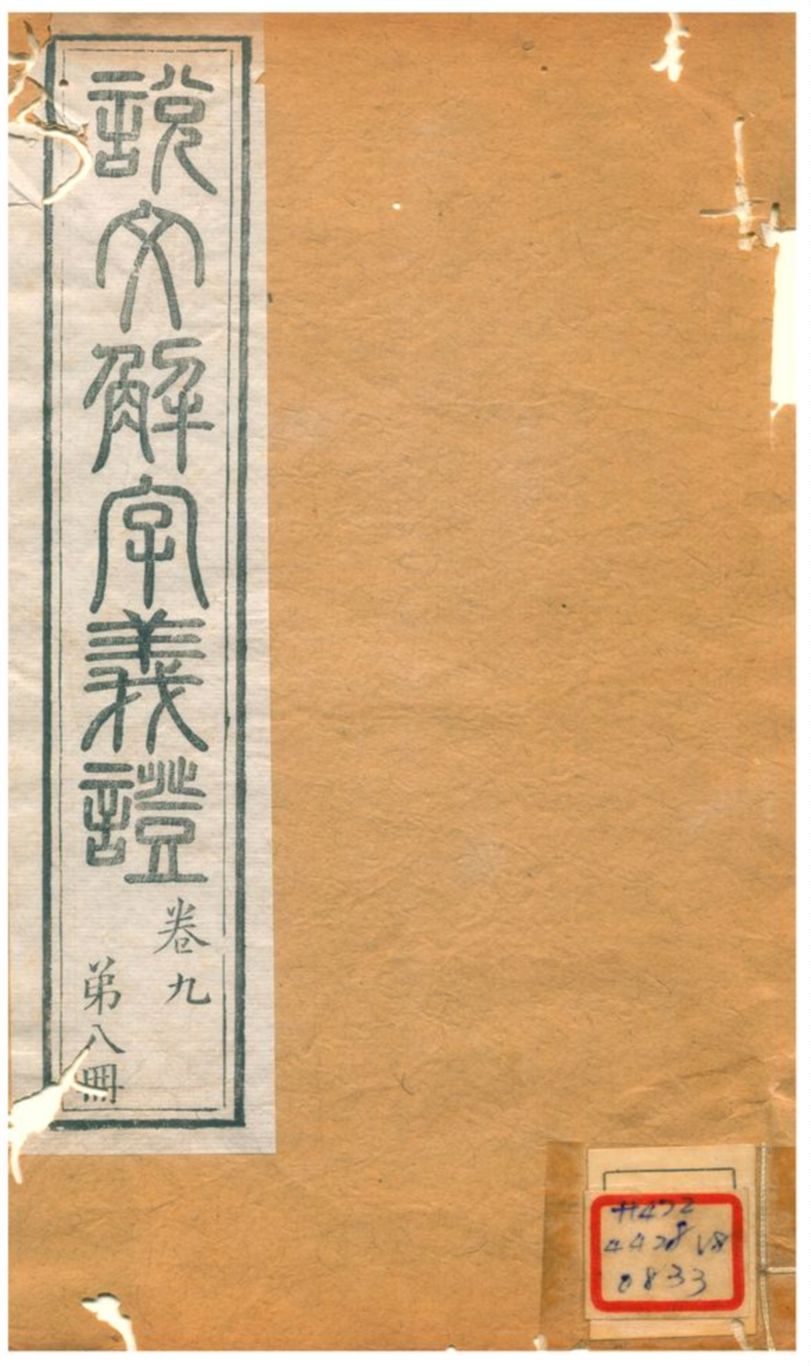 說文解字義證
卷九
第八冊
H472
4428 V8
0833